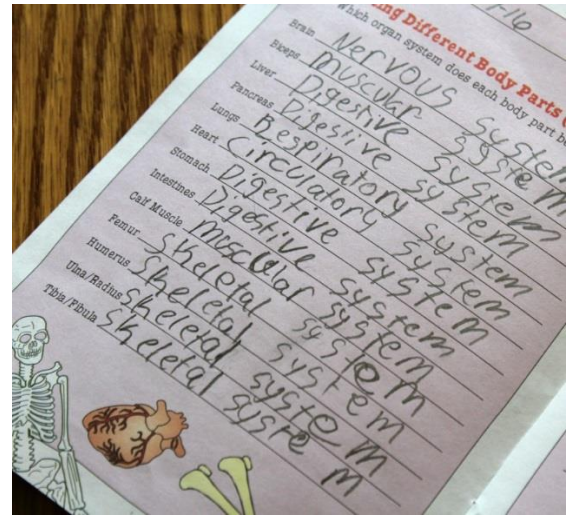 -16
ing Different Body Parts
Which organ system does each body part be
Brain Nervous system
Biceps muscular system
Liver Digestive system
Pancreas Digestive system
Lungs Respiratory system
Heart Circulatory system
Stomach Digestive system
Intestines Digestive system
Calf Muscle muscular system
Femur skeletal system
Humerus skeletal system
Ulna/Radius skeletal system
Tibia/Fibula skeletal system